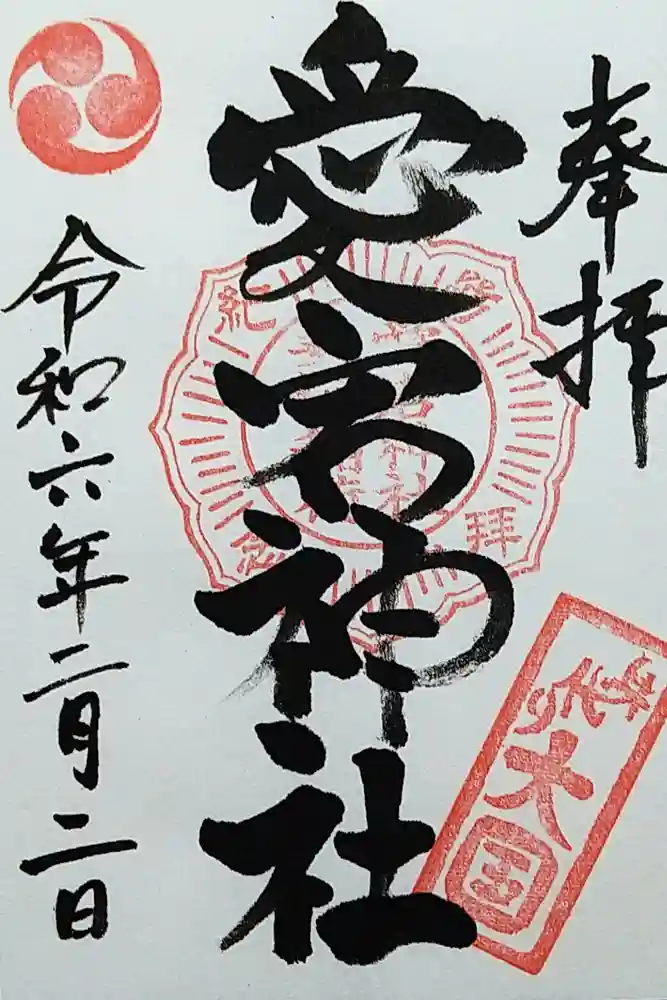 奉拝
愛宕神社
令和六年二月二日
参拝
紀念
大国